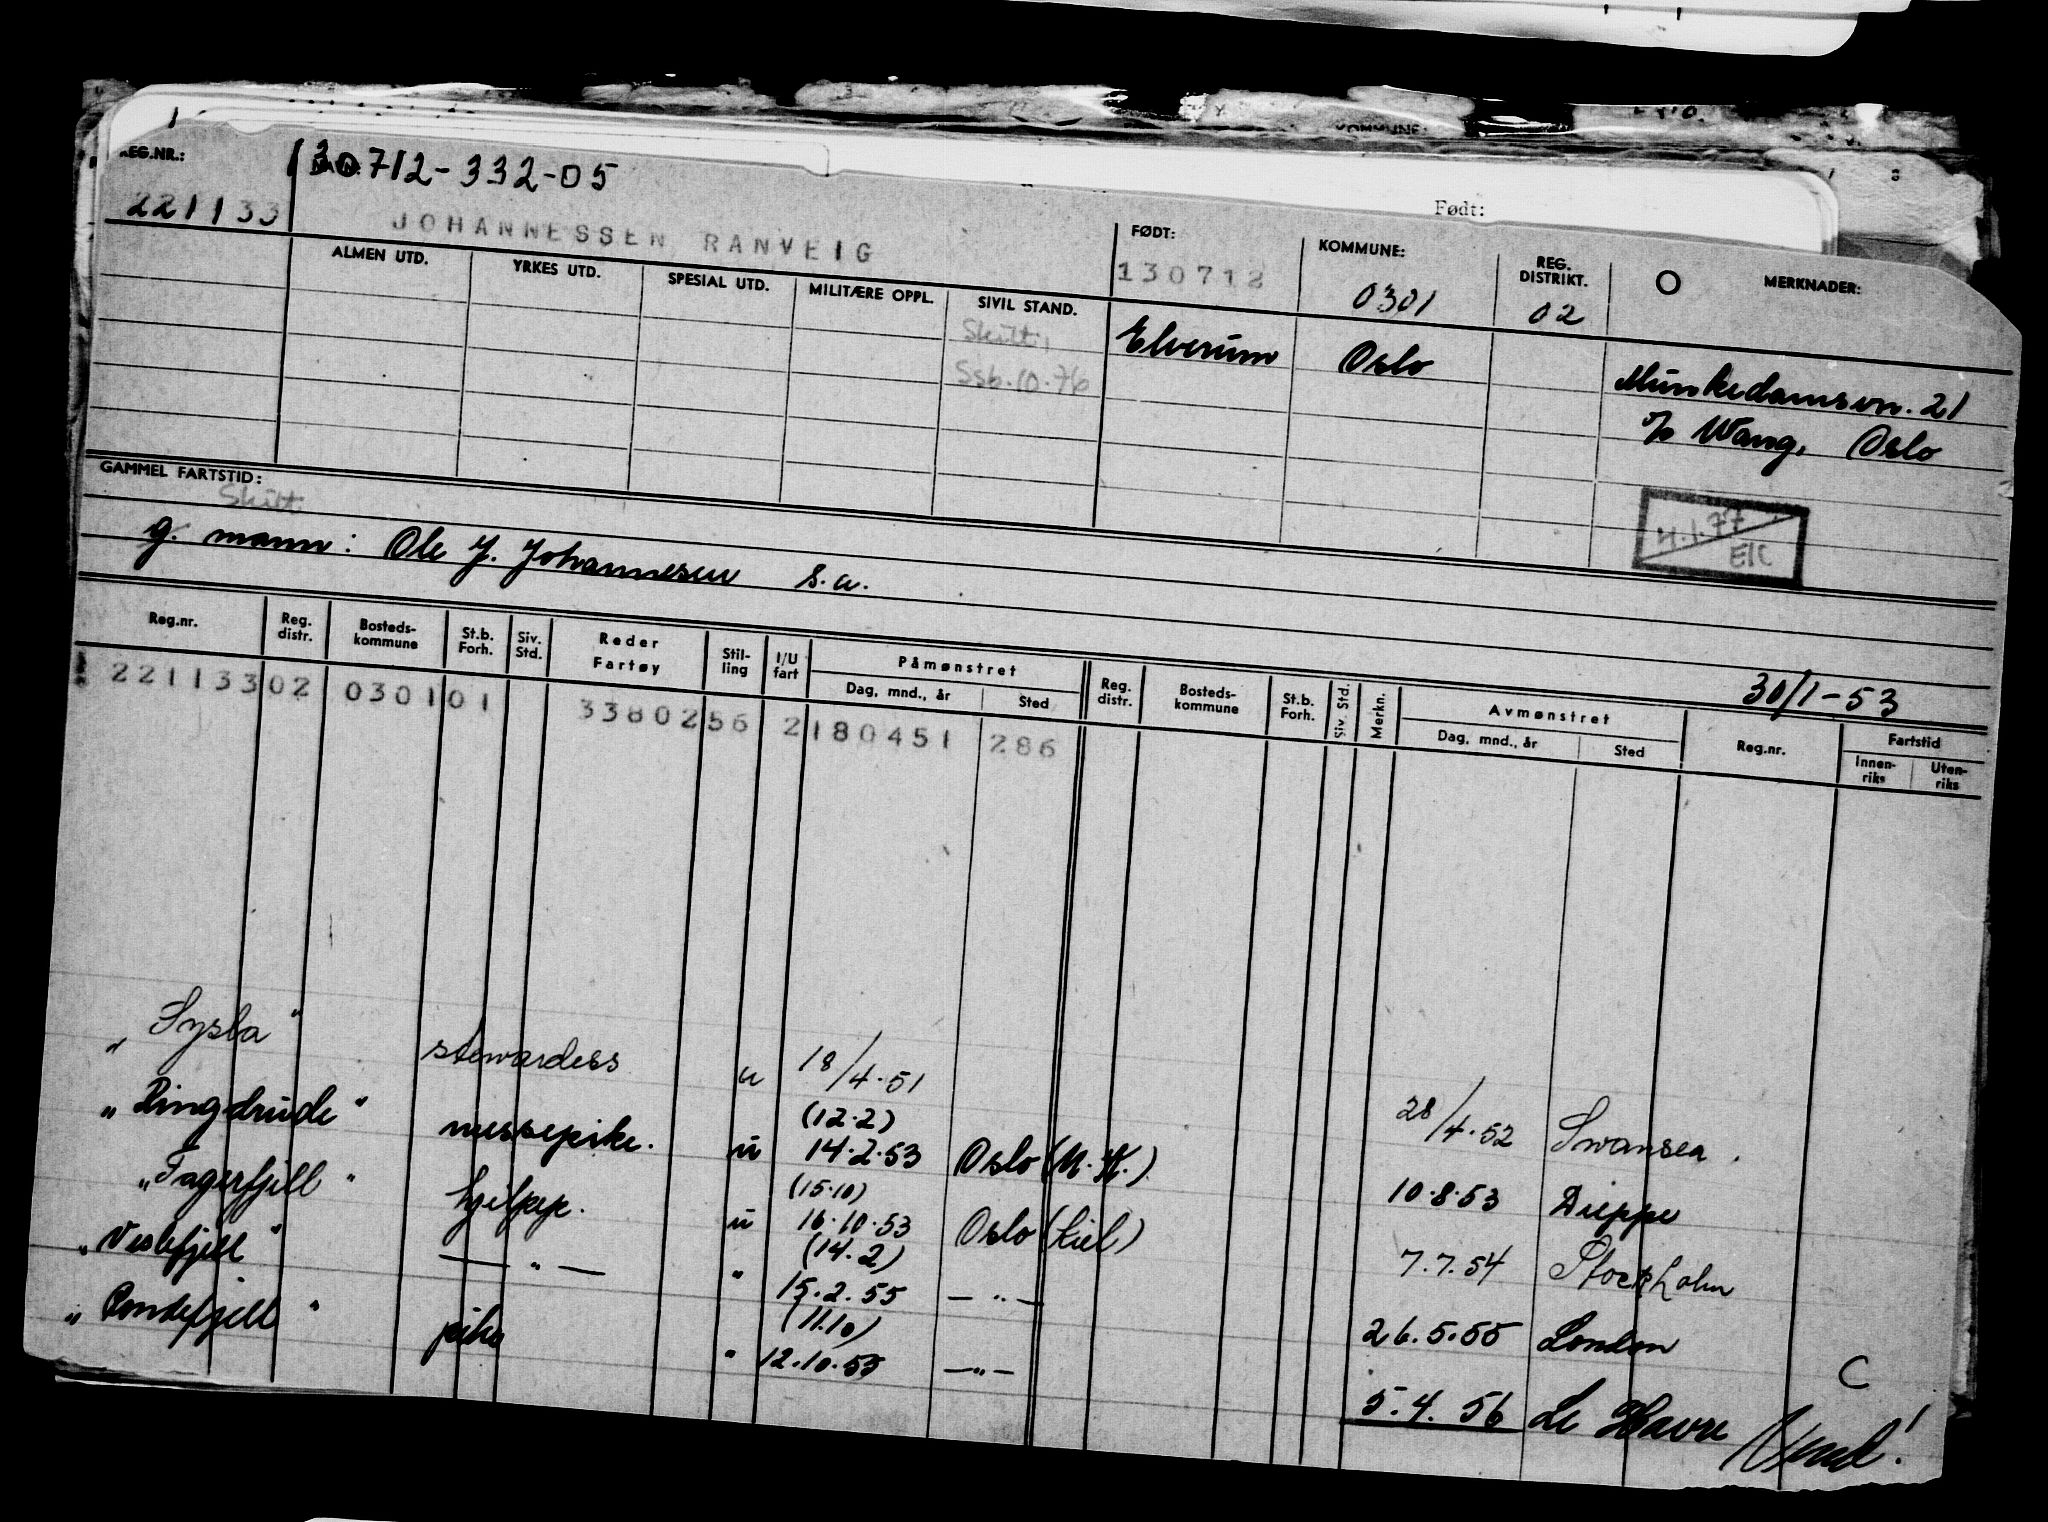 Født:
REG.NR.: 130712-332-05
221133 JOHANNESSEN RANVEIG
FØDT: KOMMUNE: REG. DISTRIKT. MERKNADER:
130712 0301 02
ALMEN UTD. YRKES UTD. SPESIAL UTD. MILITÆRE OPPL. SIVIL STAND.
Skilt, Elverum Oslo Munkedamsvn. 21
Ssb. 10.76 c/o Wang, Oslo
GAMMEL FARTSTID:
Skilt
4.1.77
g. mann: Ole J. Johannesen s.a.
30/1-53
Reg.nr. Reg. distr. Bosteds-kommune St.b. Forh. Siv. Std. Reder Fartøy Stil-ling I/U fart Påmønstret Dag, mnd., år Sted Reg. distr. Bosteds-kommune St.b. Forh. Siv. Std. Merkn. Avmønstret Dag, mnd., år Sted Reg.nr. Fartstid Innen-riks Uten-riks
221133 02 0301 01 3380256 2 180451 286
"Sysla" stewardess u 18/4.51 28/4.52 Swansea.
(12.2)
"Ringdrude" messepike. u 14.2.53 Oslo (U.K.) 10.8.53 Dieppe
(15.10)
"Fagerfjell" hjelpep. u 16.10.53 Oslo (Kiel) 7.7.54 Stockholm
(14.2)
"Veslefjell" — " — " 15.2.55 — " — 26.5.55 London
(11.10)
"Rondefjell" pike " 12.10.55 — " — 5.4.56 Le Havre
C
Vend!